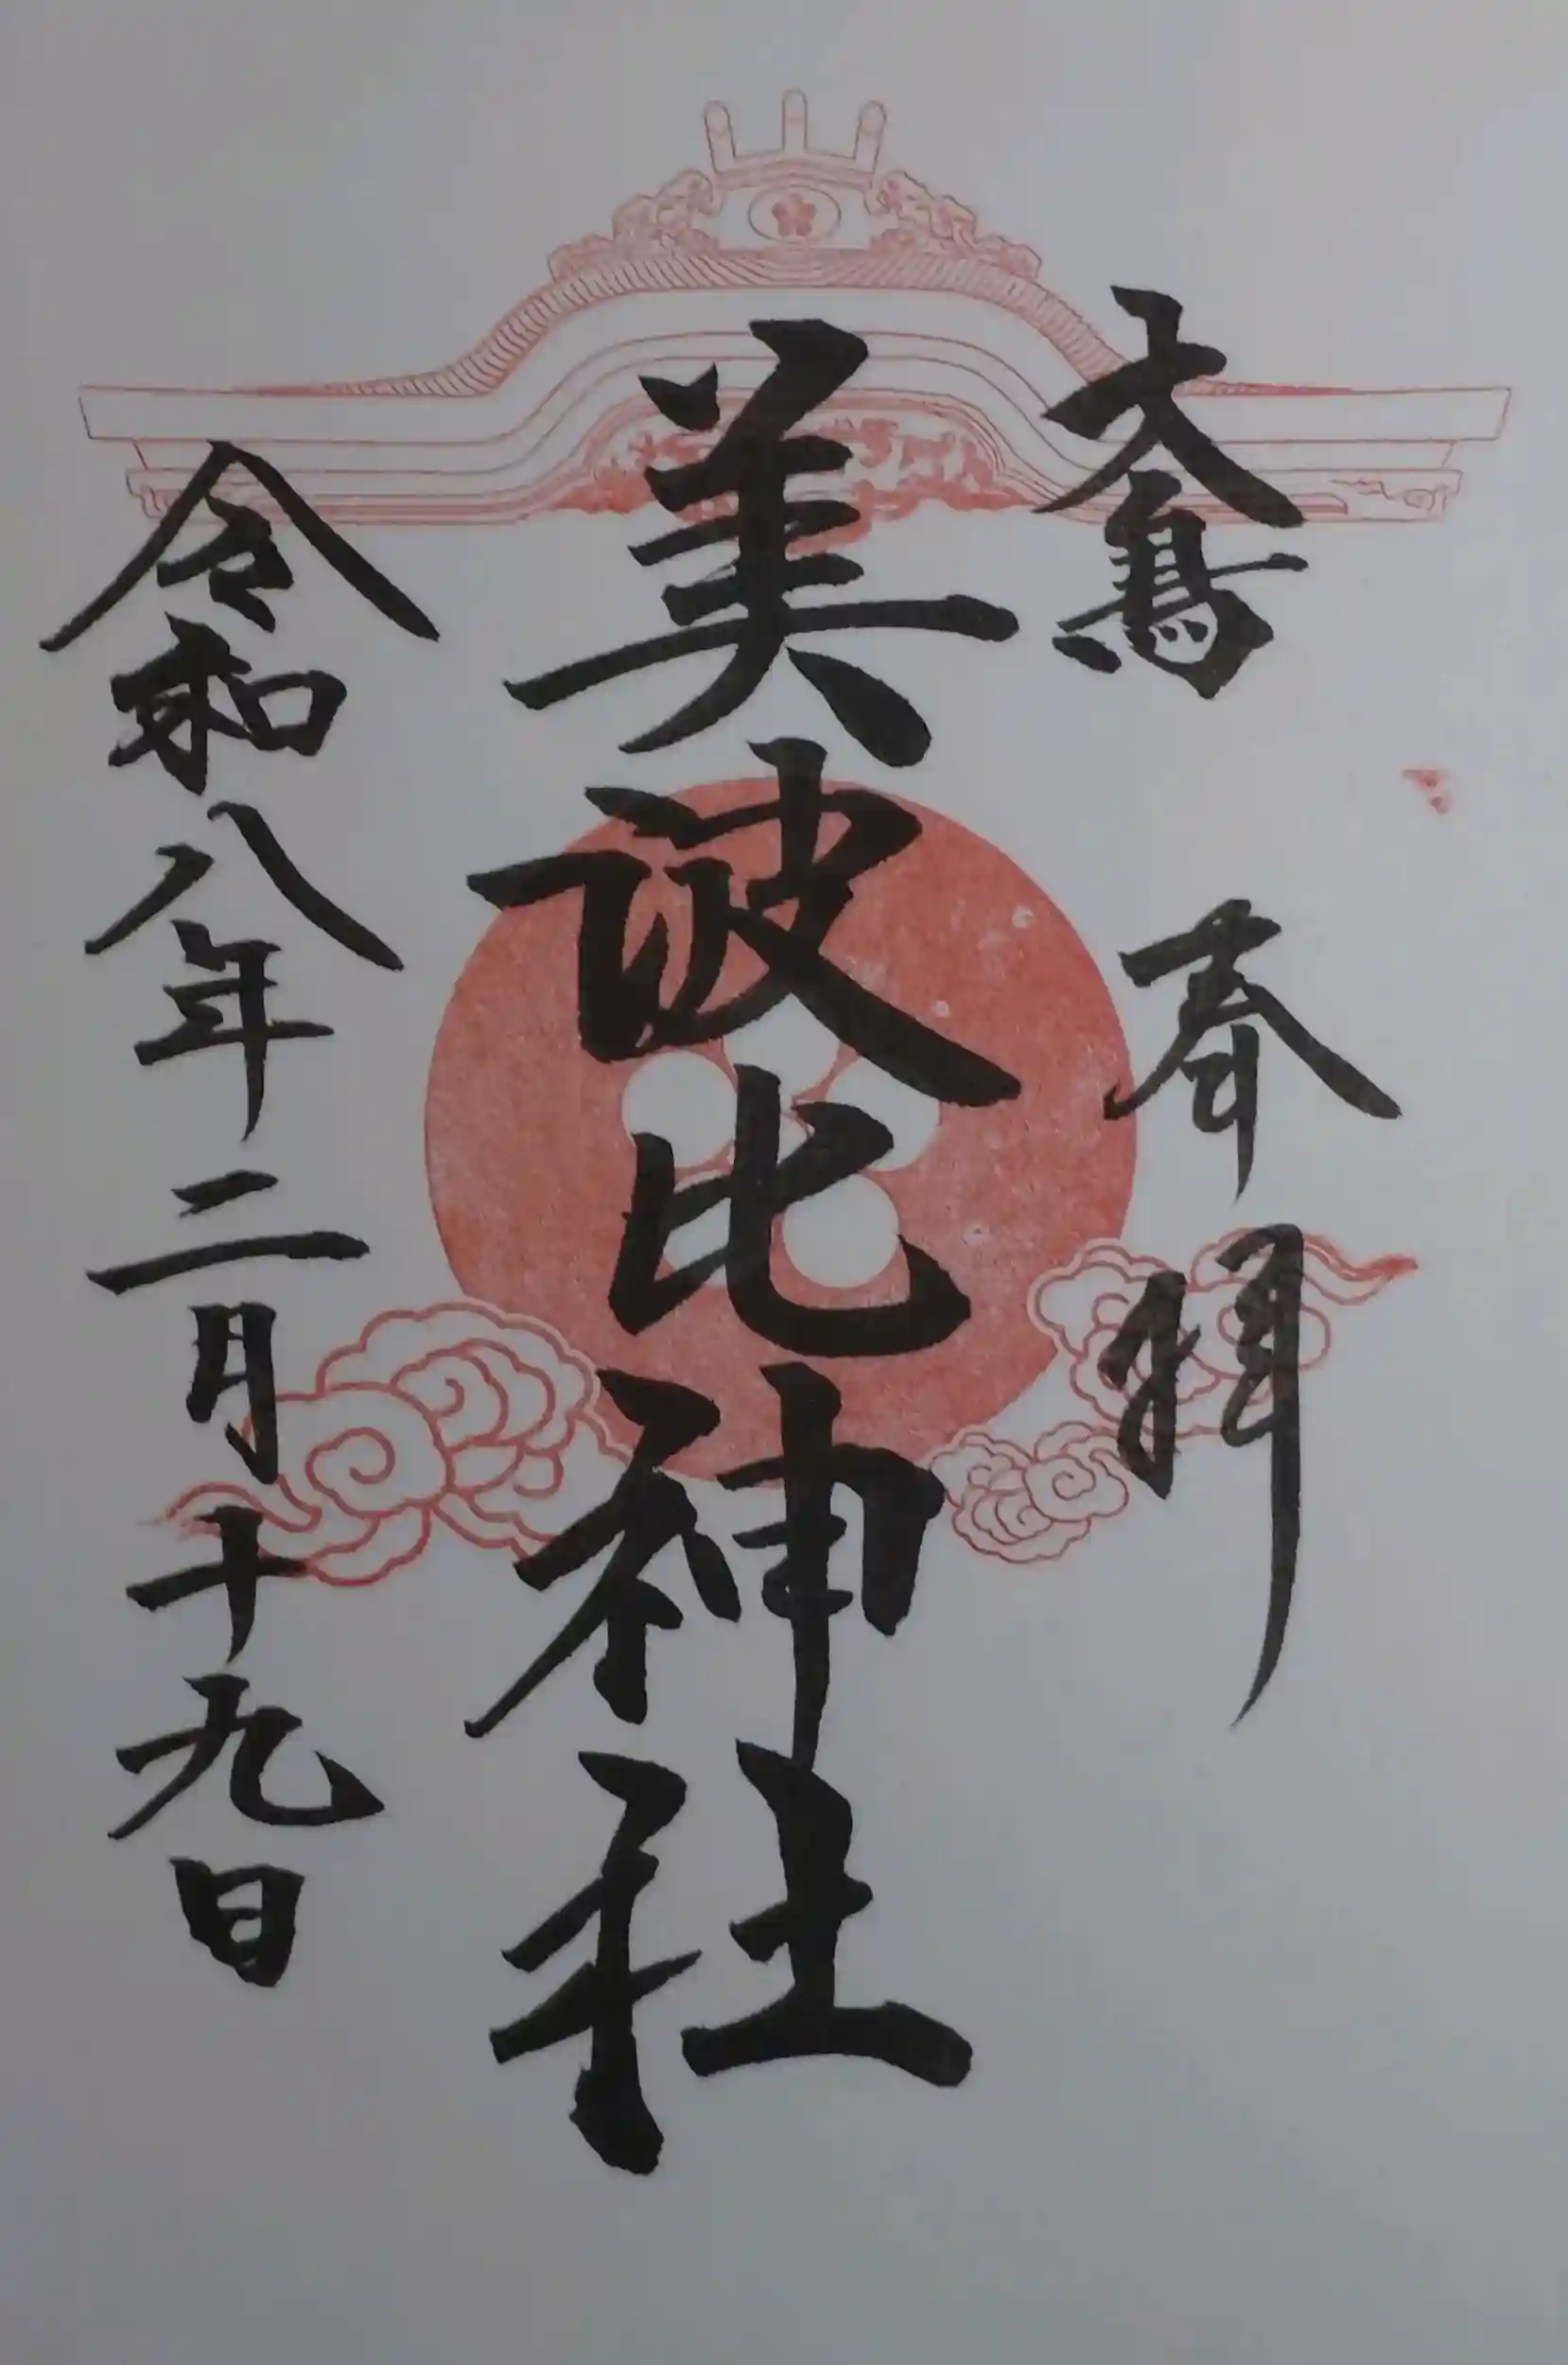 大鳥 奉拝
美波比神社
令和八年二月十九日